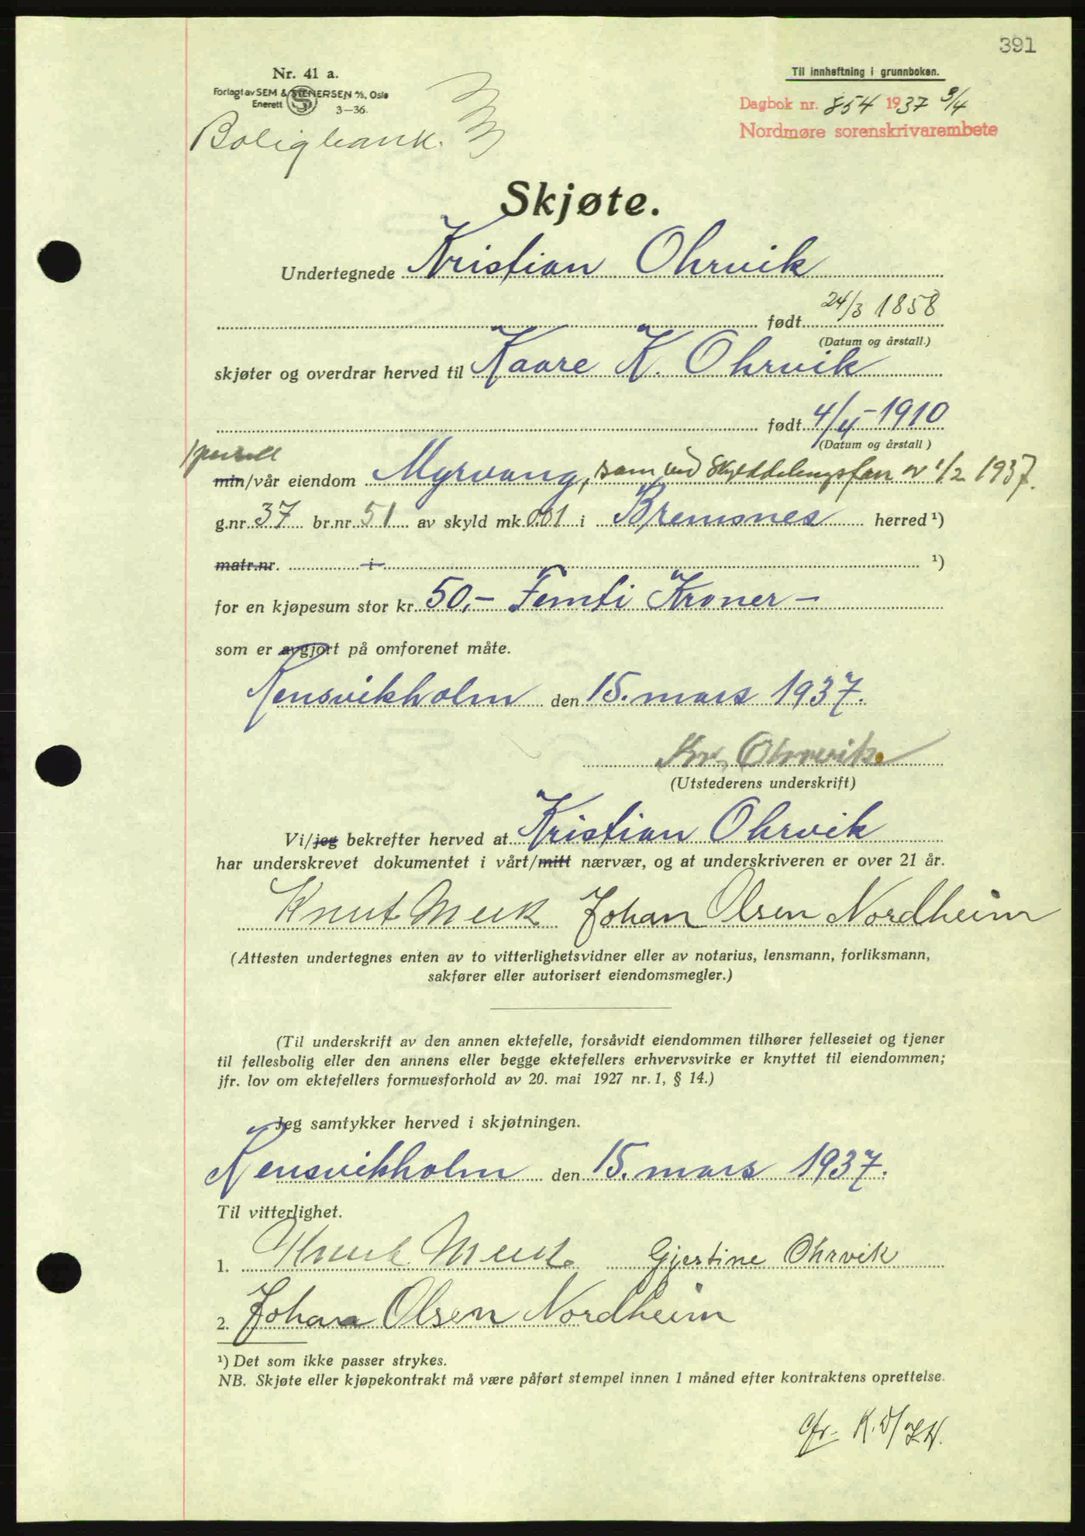 391
Nr. 41 a.
Forlagt av SEM & STENERSEN A/S, Oslo
Enerett 3-36
Til innheftning i grunnboken.
Dagbok nr. 854 1937 3/4
Nordmøre sorenskrivarembete
Boligbank.
Skjøte.
Undertegnede Kristian Ohrvik
født 24/3 1858
(Datum og årstall.)
skjøter og overdrar herved til Kaare K. Ohrvik
født 4/4-1910
(Datum og årstall)
min/vår eiendom Myrvang, som ved skylddelingsforr av 1/2 1937.
g.nr. 37 br.nr. 51 av skyld mk. 0.01 i Bremsnes herred ¹)
matr.nr. i ¹)
for en kjøpesum stor kr. 50,- Femti Kroner -
som er avgjort på omforenet måte.
Rensvikholm den 15. mars 1937.
Kr. Ohrvik
(Utstederens underskrift)
Vi/jeg bekrefter herved at Kristian Ohrvik
har underskrevet dokumentet i vårt/mitt nærvær, og at underskriveren er over 21 år.
Knut Meek Johan Olsen Nordheim
(Attesten undertegnes enten av to vitterlighetsvidner eller av notarius, lensmann, forliksmann,
sakfører eller autorisert eiendomsmegler.)
(Til underskrift av den annen ektefelle, forsåvidt eiendommen tilhører felleseiet og tjener
til fellesbolig eller den annens eller begge ektefellers erhvervsvirke er knyttet til eiendommen;
jfr. lov om ektefellers formuesforhold av 20. mai 1927 nr. 1, § 14.)
Jeg samtykker herved i skjøtningen.
Rensvikholm den 15. mars 1937.
Til vitterlighet.
1. Knut Meek Gjertine Ohrvik
2. Johan Olsen Nordheim
¹) Det som ikke passer strykes.
NB. Skjøte eller kjøpekontrakt må være påført stempel innen 1 måned efter kontraktens oprettelse.